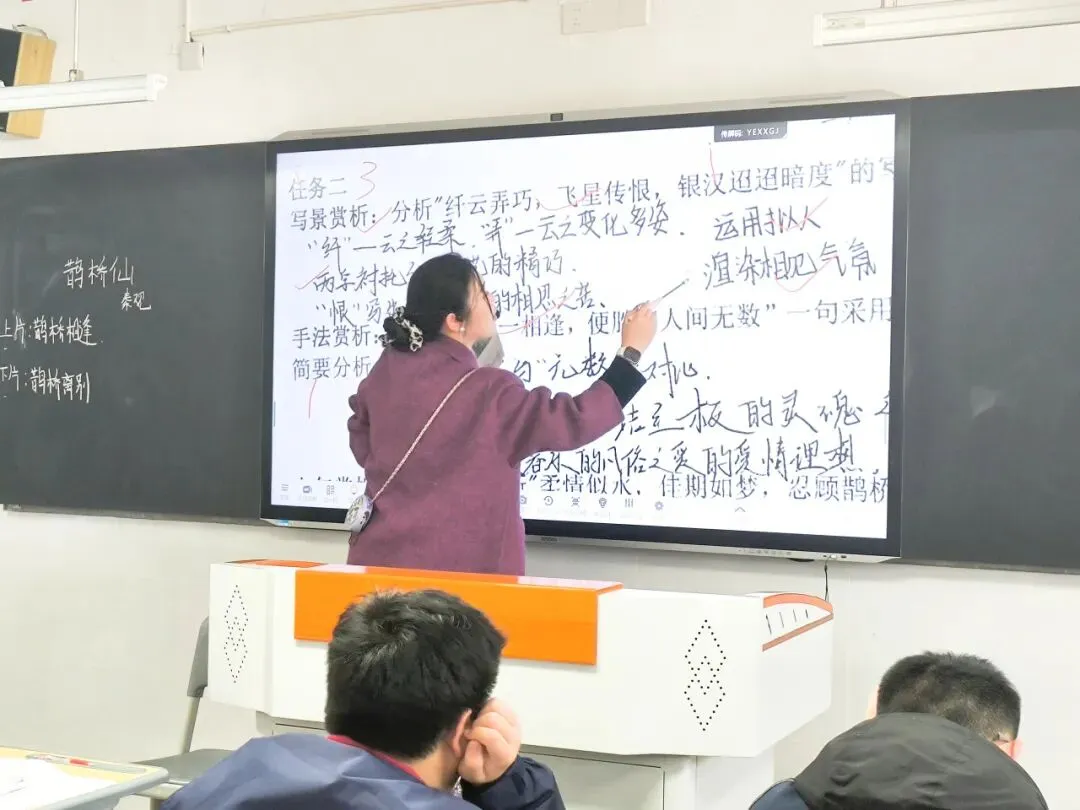 鹊桥仙
秦观
上片：鹊桥相逢
下片：鹊桥离别
传屏码: YEXXGJ
任务二 3
写景赏析：分析"纤云弄巧，飞星传恨，银汉迢迢暗度"的
"纤"—云之轻柔."弄"—云之变化多姿. 运用拟人
的精巧. 渲染相见气氛
"恨"写 的相思之苦.
手法赏析： 一相逢，便胜 人间无数"一句采用
简要分析 与"无数 对比.
板的灵魂
的风俗之爱的爱情理想
"柔情似水，佳期如梦，忍顾鹊桥